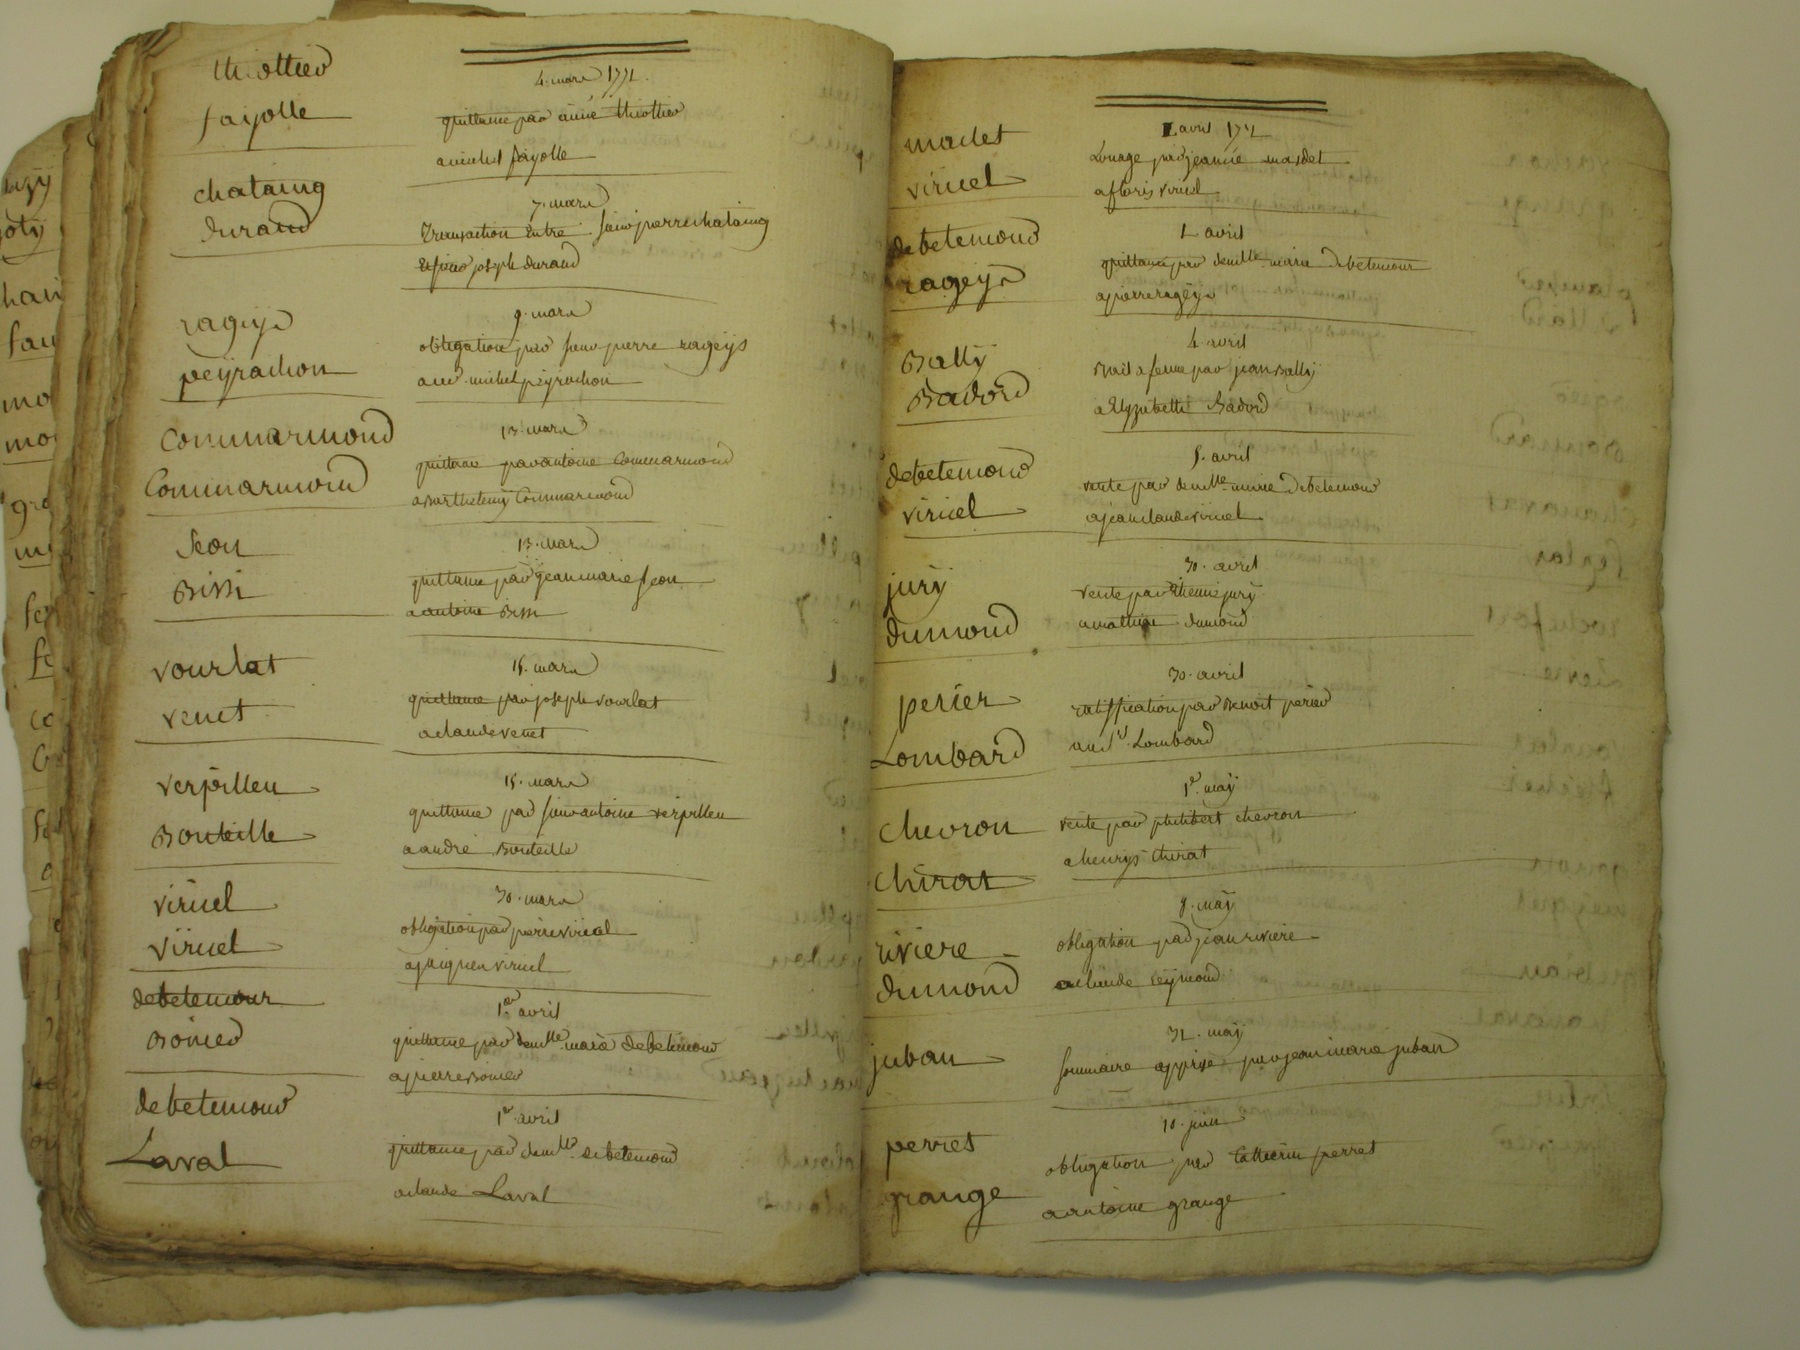 thiollier
fayolle
4. mars 1772.
quittance par anne thiollier
a michel fayolle
chataing
durand
7. mars
Transaction Entre sieur pierre chataing
Et sieur joseph durand
rageys
peyrachon
9. mars
obligation par sieur pierre rageys
a sr. michel peyrachon
Commarmond
Commarmond
13. mars
quittance par antoine Commarmond
a Barthelemy Commarmond
Seon
Bissi
13. mars
quittance par jean marie Seon
a antoine Bissi
vourlat
venet
15. mars
quittance par joseph vourlat
a claude venet
verpilleu
Bouteille
15. mars
quittance par sieur antoine verpilleu
a andré Bouteille
viricel
viricel
30. mars
obligation par pierre viricel
a jaiquen viricel
debetemour
Bonier
1er avril
quittance par demlle. marie debetemour
a pierre Bonier
debetemour
Laval
1er avril
quittance par demlle. debetemour
a claude Laval
mardet
viricel
avril
Louage par jeanne mardet
a fleuris viricel
debetemour
rageys
avril
quittance par demlle. marie debetemour
a pierre rageys
Bally
Badord
4. avril
Bail a ferme par jean Bally
a Elyzabette Badord
debetemour
viricel
5. avril
vente par demlle. marie debetemour
a jean claude viricel
jury
dumond
30. avril
vente par Etienne jury
a mathieu dumond
perier
Lombard
30. avril
ratiffication par Benoit perier
Lombard
chevron
chirat
1er. may
vente par philibert chevron
a henrys chirat
riviere
dumond
9. may
obligation par jean riviere
a claude Reymond
juban
31. may
Sommaire apprise par jean marie juban
perret
grange
10. juin
obligation par Catherine perret
a antoine grange